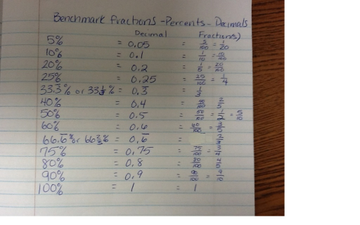 Benchmark Fractions - Percents - Decimals
Decimal Fraction(s)
5% = 0.05 = 5/100 = 1/20
10% = 0.1 = 1/10 = 10/100
20% = 0.2 =
25% = 0.25 = 25/100 = 1/4
33.3% or 33⅓% = 0.3̅ = 1/3
40% = 0.4 =
50% = 0.5 = 50/100 = 1/2 = 5/10
60% = 0.6 =
66.6̅% or 66⅔% = 0.6̅ = 2/3
75% = 0.75 = 75/100 = 3/4
80% = 0.8 =
90% = 0.9 = 90/100 = 9/10
100% = 1 = 1